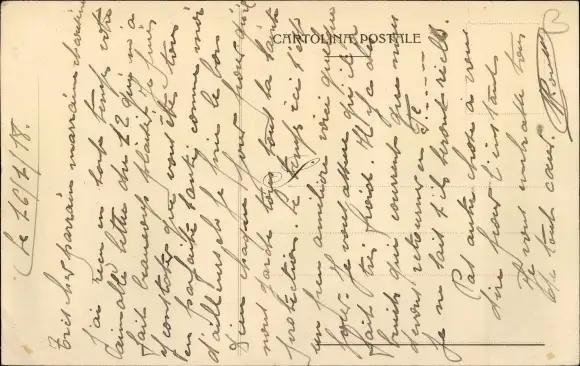 CARTOLINA POSTALE
Le 16/7/18.
Très cher parrain marraine
J'ai reçu en son temps votre
aimable lettre du 12 qui m'a
fait beaucoup plaisir. Je puis
y constater que vous êtes tous
en parfaite santé comme moi
d'ailleurs et je prie le bon
Dieu chaque jour pour qu'il
nous garde tous sous la sainte
protection. Le temps ici s'est
un peu amélioré voici quelques
jours. Je vous assure qu'il
fait très froid. Il y a des
bruits qui courent que nous
devons retourner en F-----
je ne sais s'ils seront réels.
Pas autre chose à vous
dire pour l'instant
Je vous embrasse tous
de tout cœur.